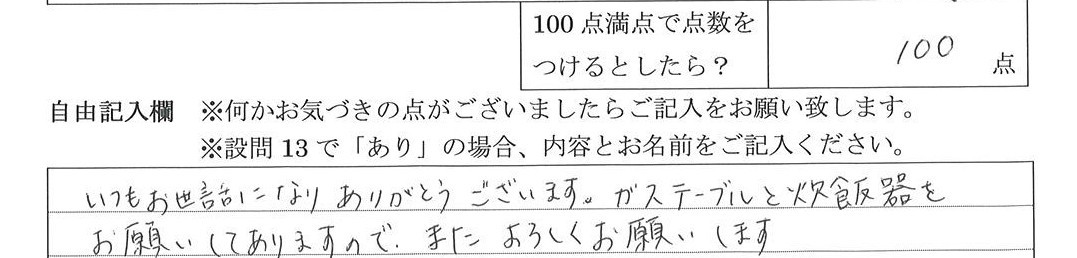 100点満点で点数を
つけるとしたら？
100 点
自由記入欄 ※何かお気づきの点がございましたらご記入をお願い致します。
※設問13で「あり」の場合、内容とお名前をご記入ください。
いつもお世話になりありがとうございます。ガステーブルと炊飯器を
お願いしてありますので、またよろしくお願いします